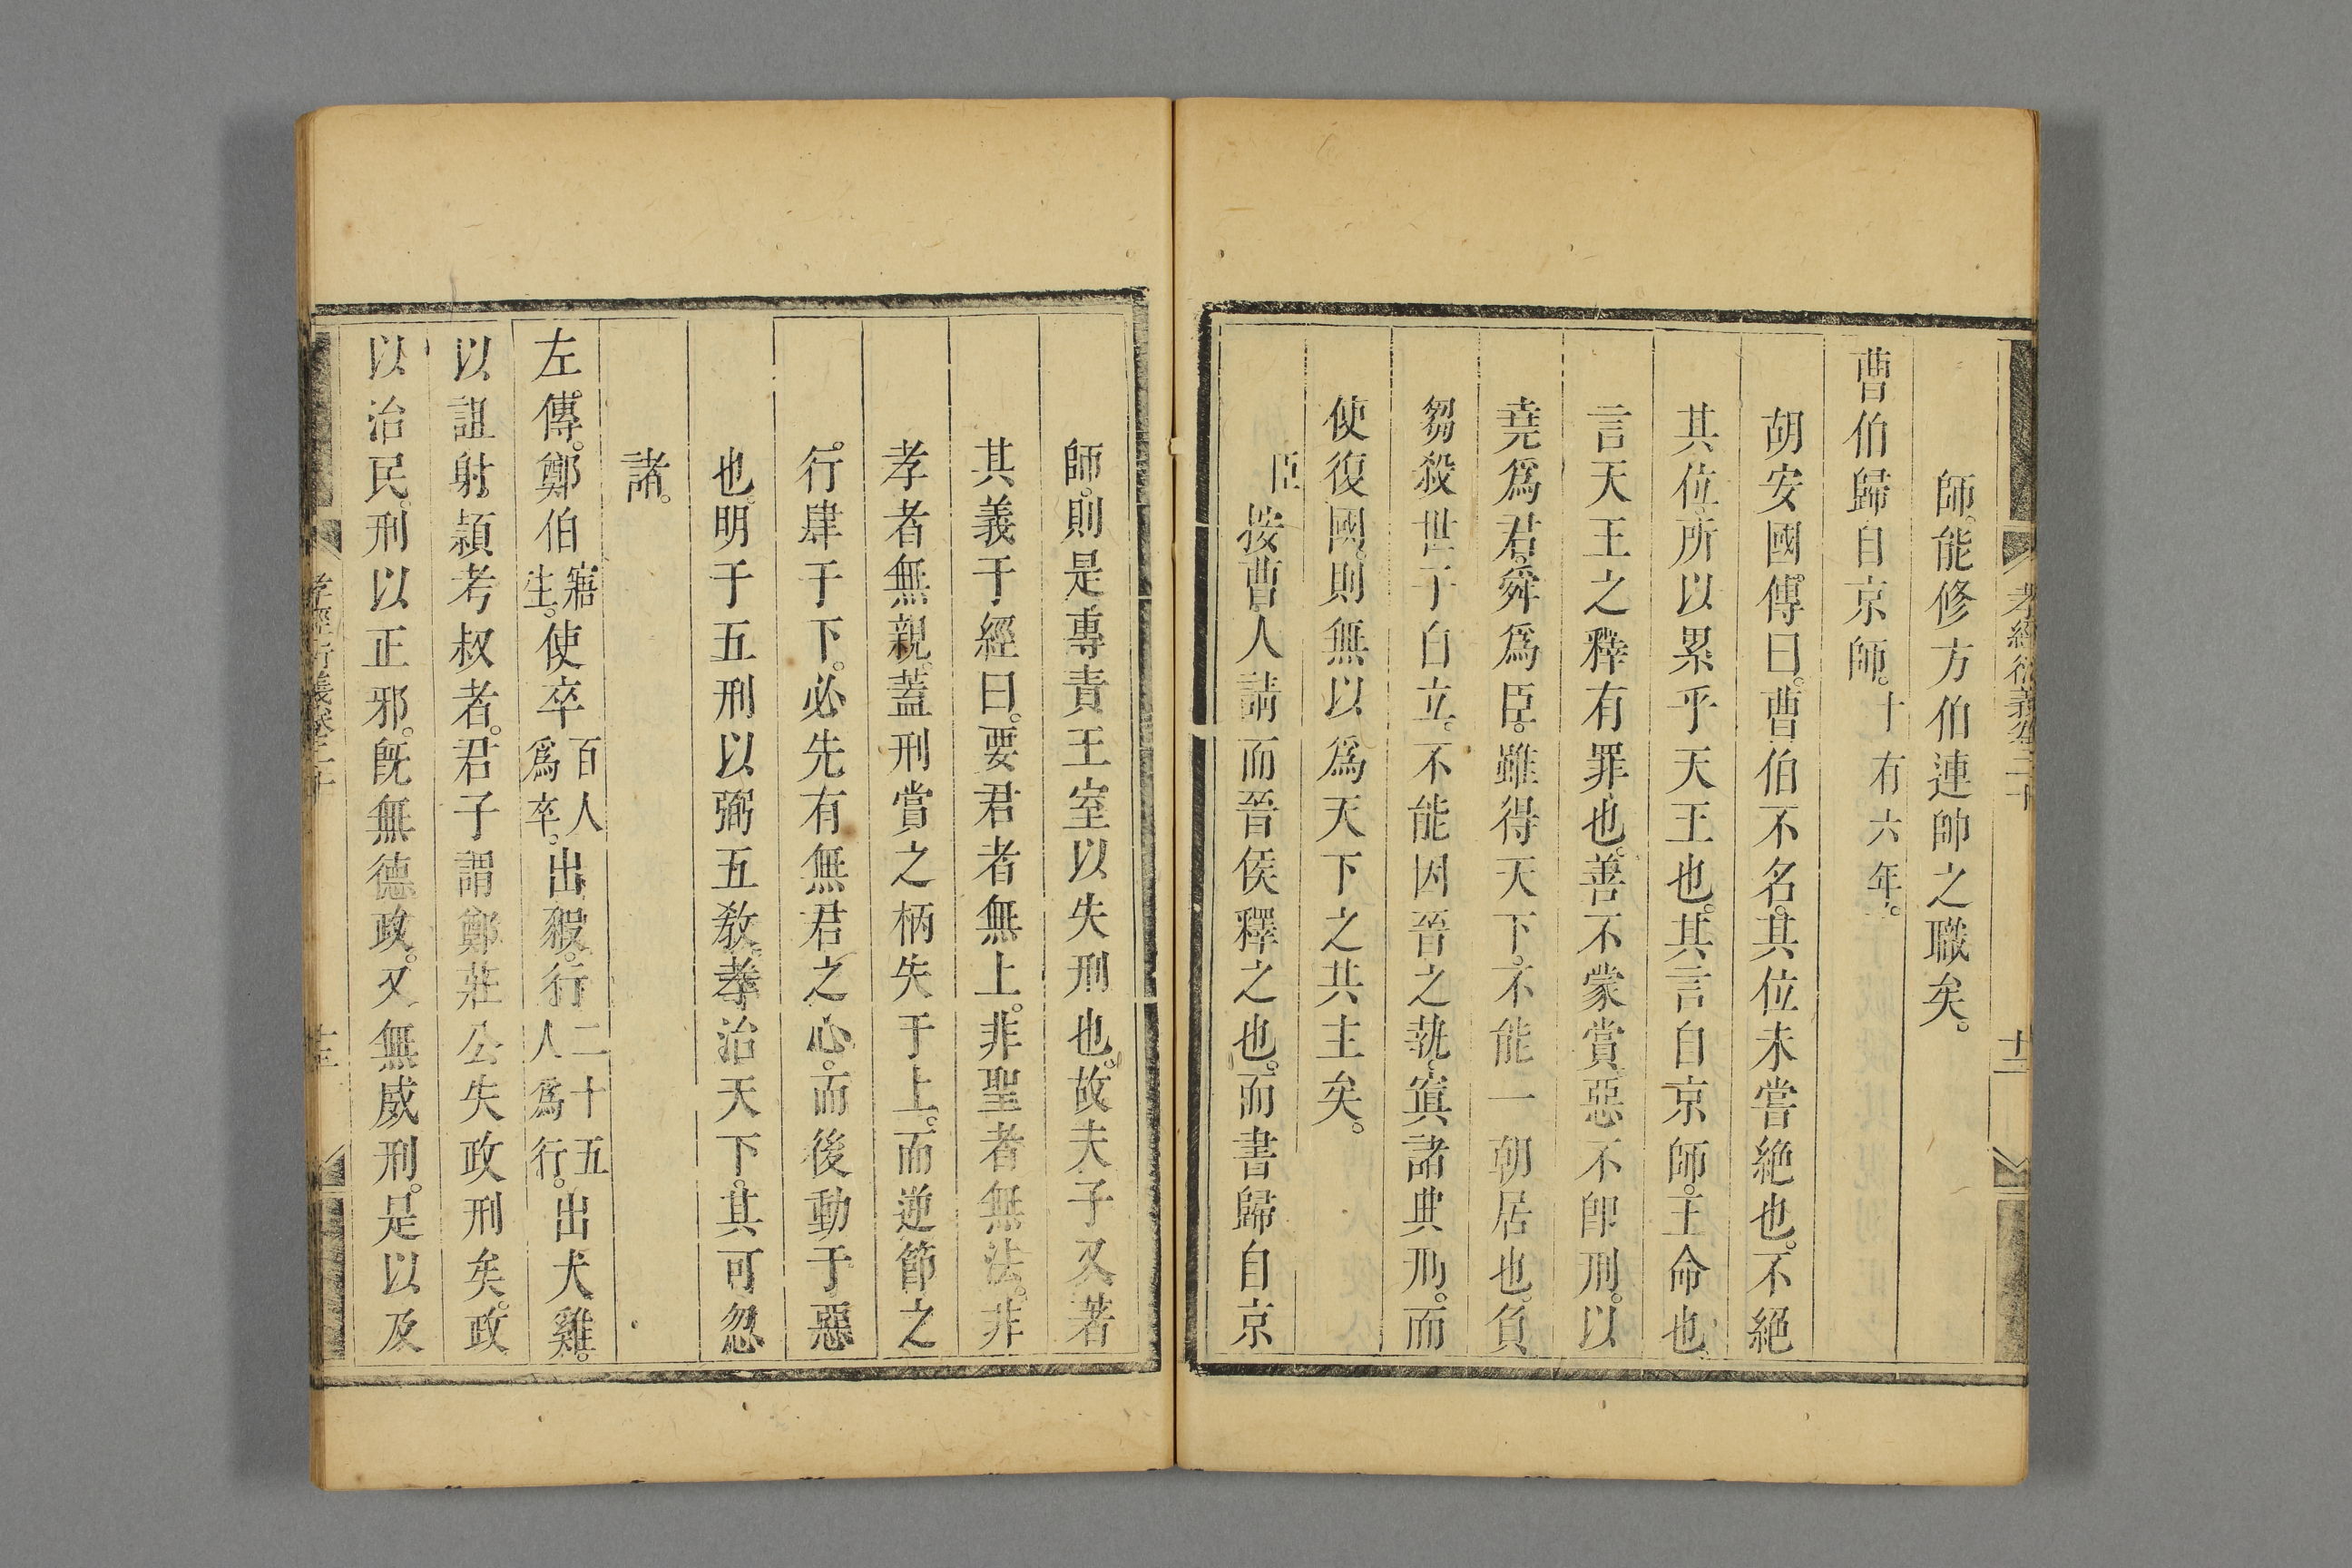 孝經衍義卷三十
十二
師。能修方伯連帥之職矣。
曹伯歸自京師。十有六年。
胡安國傳曰。曹伯不名。其位未嘗絶也。不絶
其位。所以累乎天王也。其言自京師。王命也。
言天王之釋有罪也。善不蒙賞。惡不卽刑。以
堯爲君。舜爲臣。雖得天下。不能一朝居也。負
芻殺世子自立。不能因晉之執。寘諸典刑。而
使復國。則無以爲天下之共主矣。
臣按曹人請而晉侯釋之也。而書歸自京
師。則是專責王室以失刑也。故夫子又著
其義于經曰。要君者無上。非聖者無法。非
孝者無親。蓋刑賞之柄失于上。而逆節之
行肆于下。必先有無君之心。而後動于惡
也。明于五刑以弼五敎。孝治天下。其可忽
諸。
左傳。鄭伯寤生。使卒百人爲卒。出豭。行二十五人爲行。出犬雞。
以詛射潁考叔者。君子謂鄭莊公失政刑矣。政
以治民。刑以正邪。旣無德政。又無威刑。是以及
孝經衍義卷三十
十三